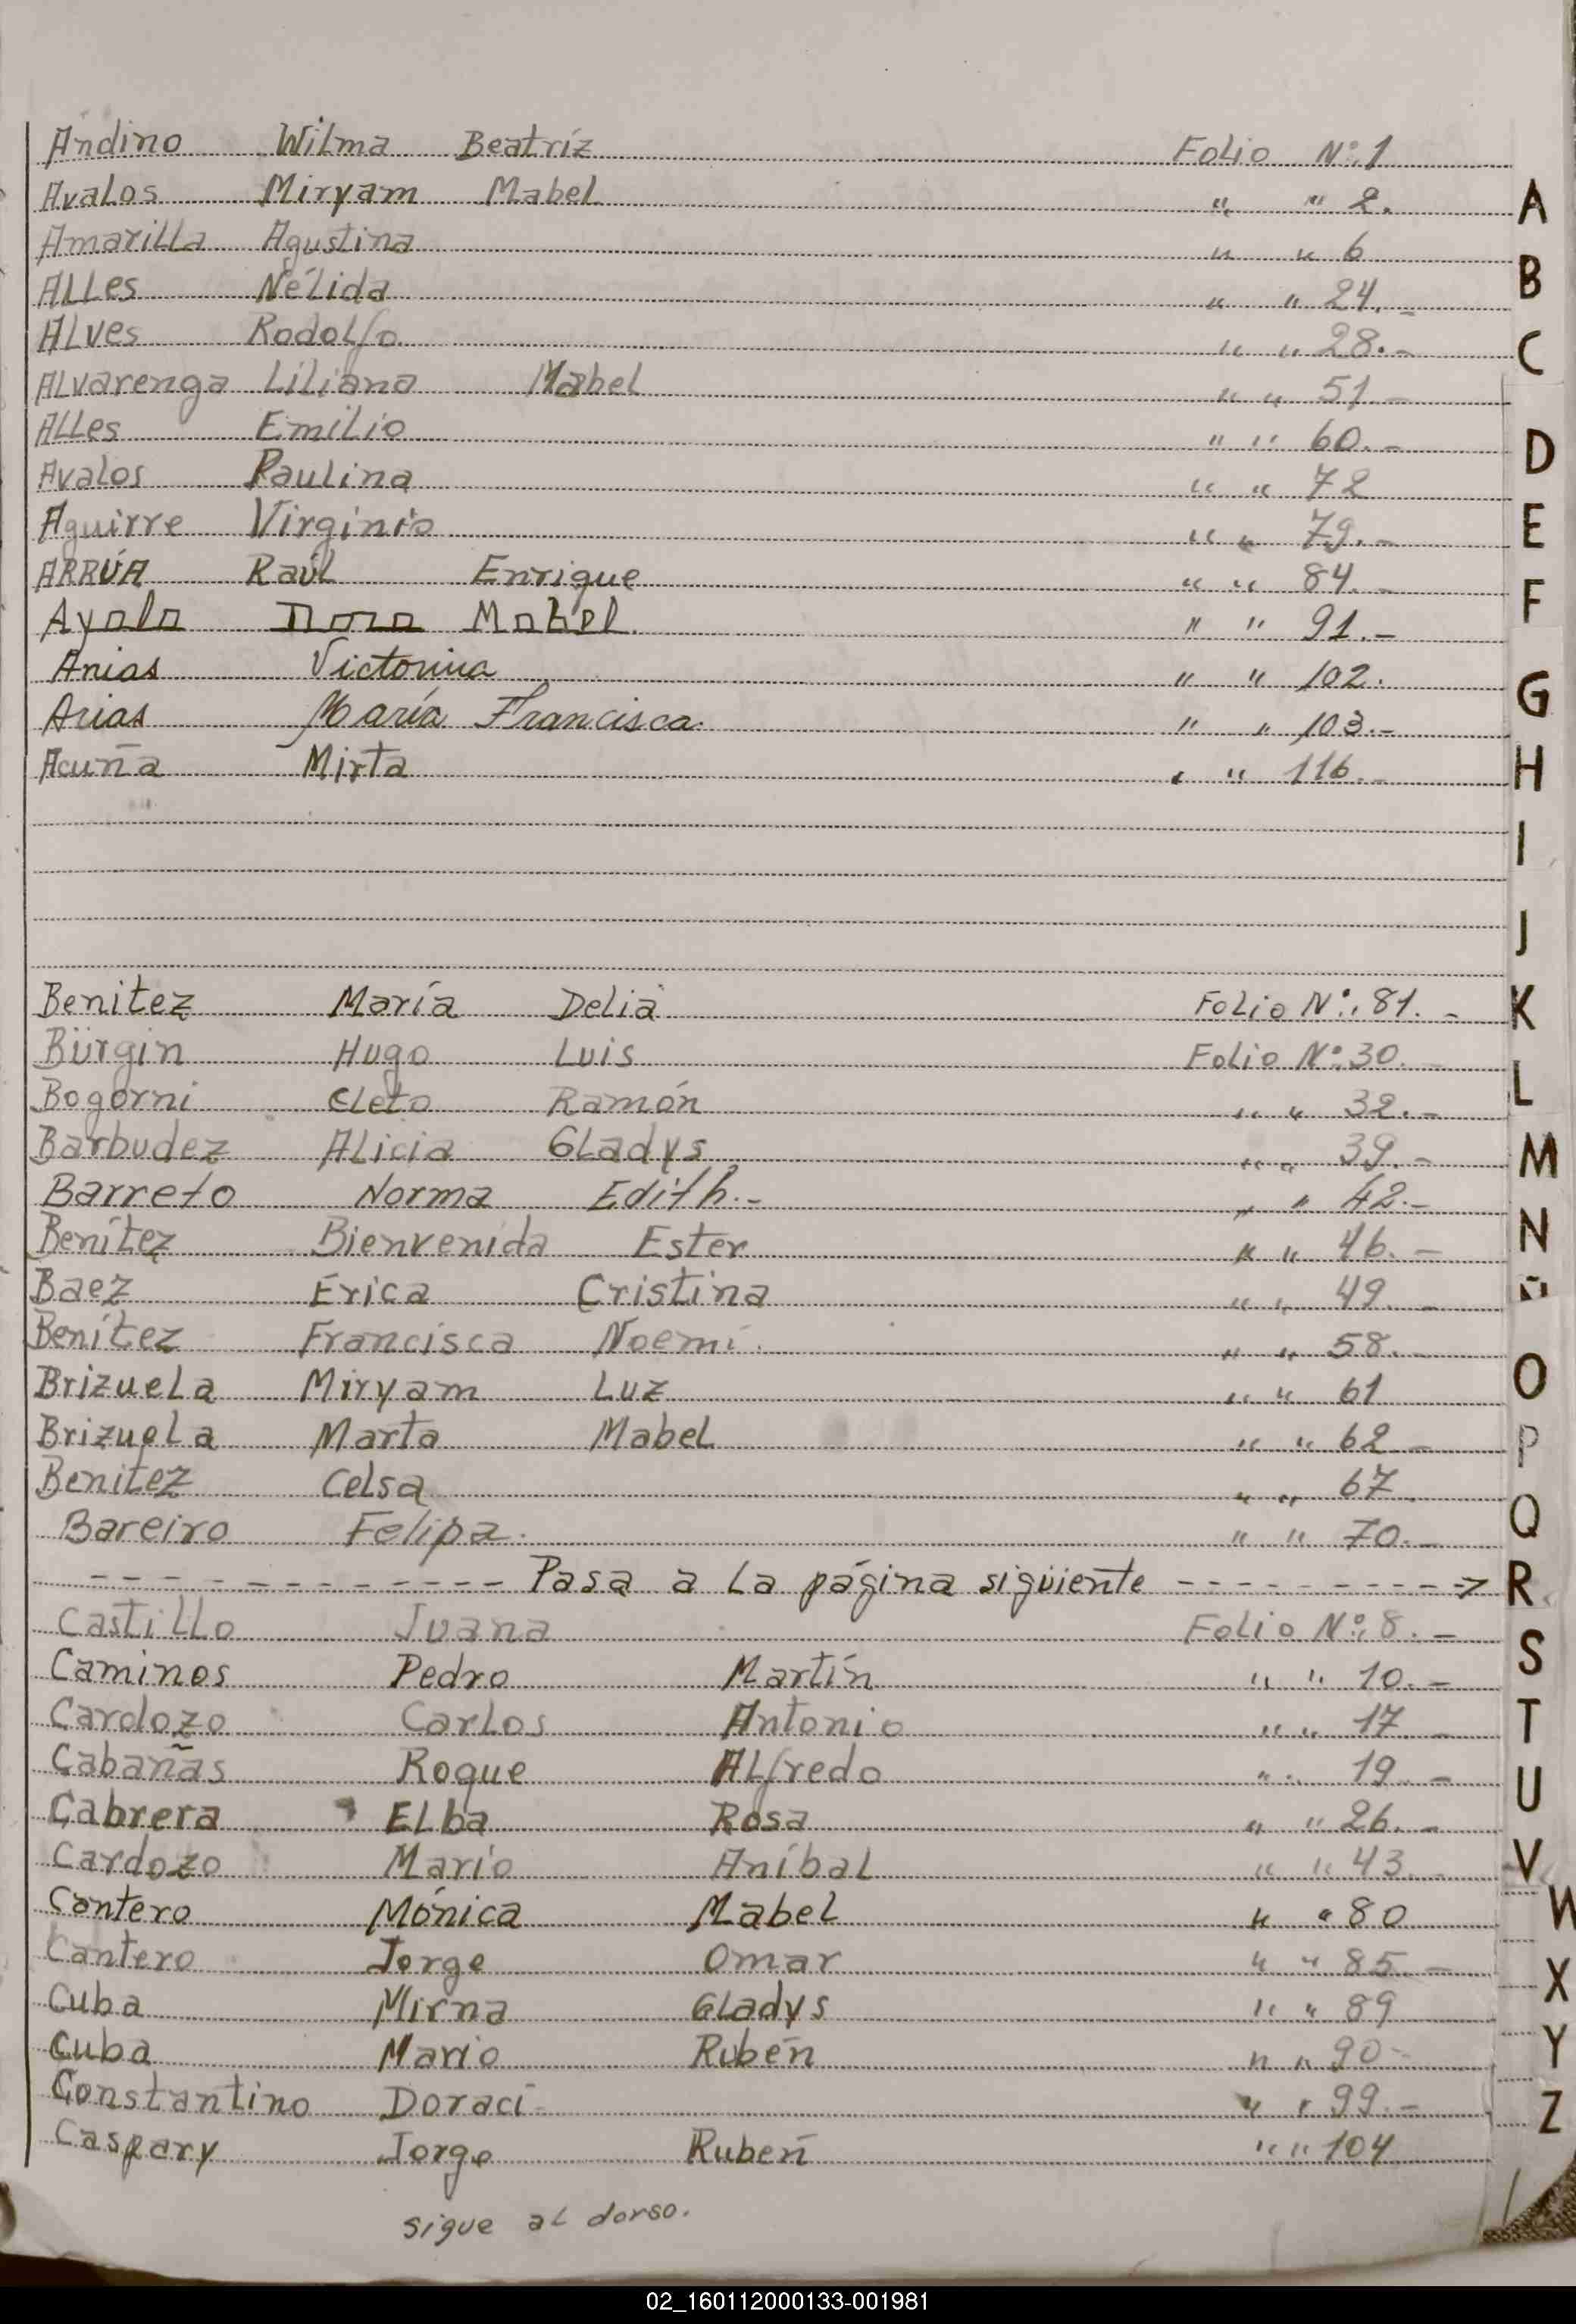 Andino Wilma Beatríz Folio Nº:,1
Avalos Miryam Mabel " " 2.
Amarilla Agustina " " 6
ALLes Nélida " " 24.-
ALves Rodolfo " " 28.-
ALvarenga Liliana Mabel " " 51.-
ALLes Emilio " " 60.-
Avalos Paulina " " 72
Aguirre Virginio " " 79.-
ARRÚA Raúl Enrique " " 84.-
Ayala Dora Mabel. " " 91.-
Arias Victorina " " 102.
Arias María Francisca. " " 103.-
Acuña Mirta " " 116.-
Benitez María Delia Folio Nº:, 81.-
Bürgin Hugo Luis Folio Nº:30.
Bogorni Cleto Ramón " " 32.-
Barbudez Alicia Gladys " " 39.-
Barreto Norma Edith.- " " 42.-
Benítez Bienvenida Ester " " 46.-
Baez Erica Cristina " " 49.-
Benítez Francisca Noemí. " " 58.-
Brizuela Miryam Luz " " 61
Brizuela Marta Mabel " " 62.-
Benitez Celsa " " 67
Bareiro Felipa. " " 70.-
- - - - - - - - - - - - Pasa a la página sigüiente - - - - - - - - - ->
Castillo Juana Folio Nº:,8.-
Caminos Pedro Martín " " 10.-
Cardozo Carlos Antonio " " 17.-
Cabañas Roque Alfredo " " 19.-
Cabrera Elba Rosa " " 26.-
Cardozo Mario Aníbal " " 43.-
Cantero Mónica Mabel " " 80
Cantero Jorge Omar " " 85.-
Cuba Mirna Gladys " " 89
Cuba Mario Rubén " " 90-
Constantino Doraci " " 99.-
Caspary Jorge Rubén " " 104
sigue al dorso.
A
B
C
D
E
F
G
H
I
J
K
L
M
N
Ñ
O
P
Q
R
S
T
U
V
W
X
Y
Z
02_160112000133-001981